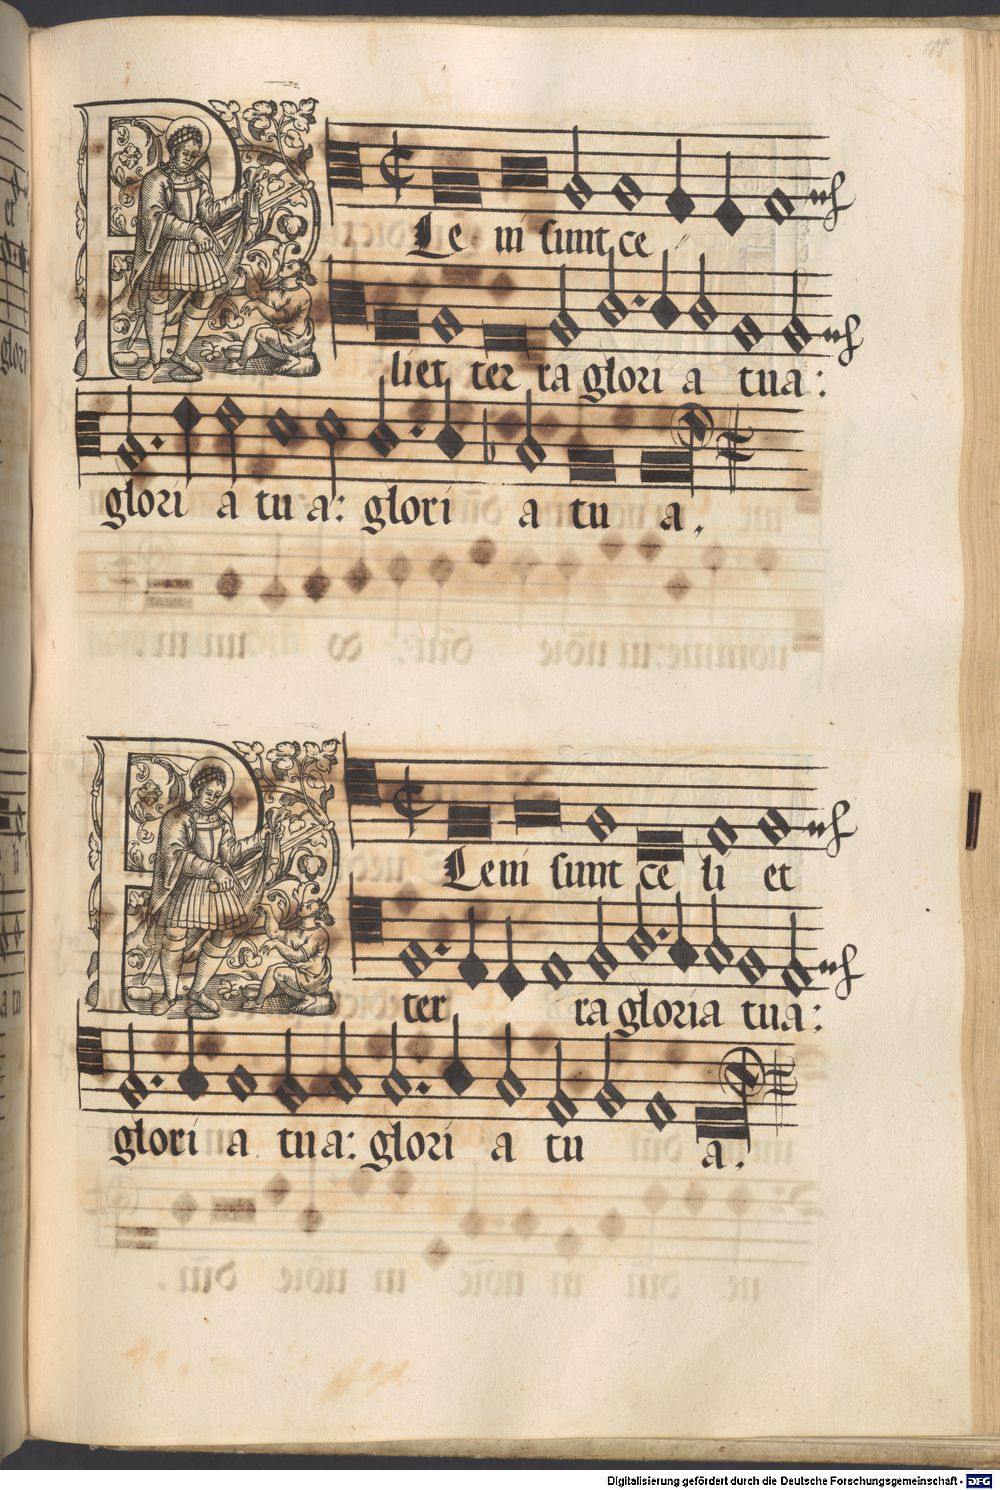 PLe ni sunt ce
li et ter ra glori a tua:
glori a tu a: glori a tu a.
PLeni sunt ce li et
ter ra gloria tua:
glori a tua: glori a tu a.
Digitalisierung gefördert durch die Deutsche Forschungsgemeinschaft - DFG